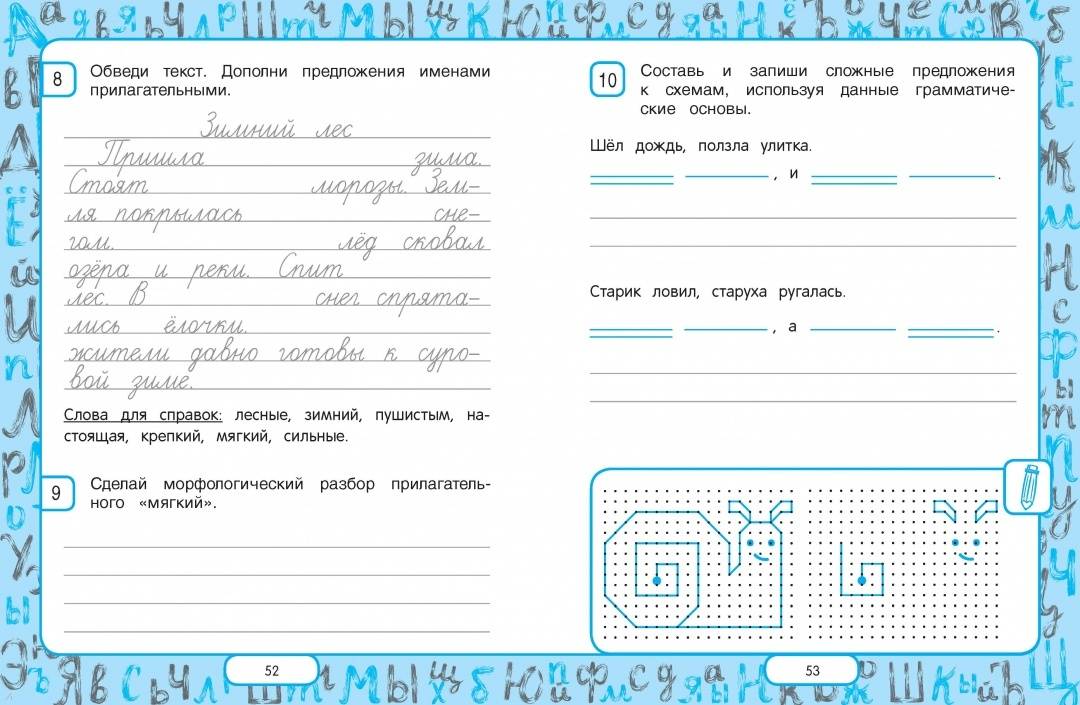 8
Обведи текст. Дополни предложения именами
прилагательными.
Зимний лес
Пришла зима.
Стоят морозы. Зем-
ля покрылась сне-
гом. лёд сковал
озёра и реки. Спит
лес. В снег спрята-
лись ёлочки.
жители давно готовы к суро-
вой зиме.
Слова для справок: лесные, зимний, пушистым, на-
стоящая, крепкий, мягкий, сильные.
9
Сделай морфологический разбор прилагатель-
ного «мягкий».
52
10
Составь и запиши сложные предложения
к схемам, используя данные грамматиче-
ские основы.
Шёл дождь, ползла улитка.
, и .
Старик ловил, старуха ругалась.
, а .
53